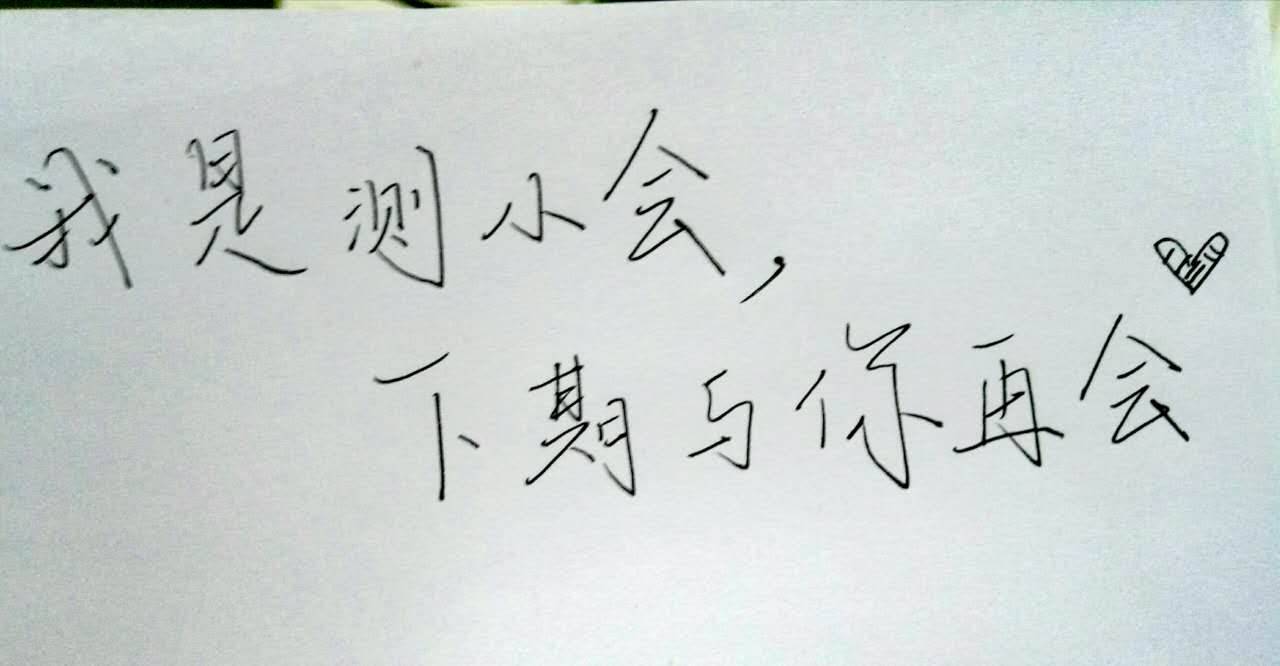 我是测小会，
下期与你再会